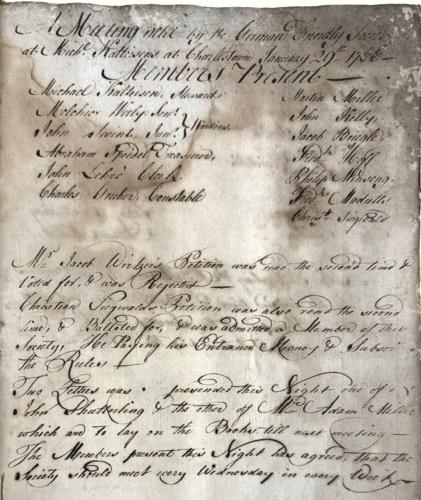 A Meeting held by the German Friendly Socie
at Mich.l Kalteisens at Charlestown January 29th 1766
Members Present —
Michael Kalteison, Steward
Melchior Werly Sen.r } Wardens
John Swint, Jun.r
Abraham Speidel Treasurer,
John Clerk
Charles Constable
Martin Miller
John Kelly
Jacob
Fred.k Hoff
Philip
Fred.k
Christ.n
M.r Jacob Petition was read the second time &
Voted for, & was Rejected —
Christian Petition was also read the second
time, & Balloted for, & was admitted a Member of this
Society, He Paying his Entrance Money & Subscri
the Rules —
Two Letters was presended this Night one of
John & the other of Adam Miller
which are to lay on the Books till next meeting —
The Members present this Night has agreed, that the
Society should meet every Wednesday in every Week